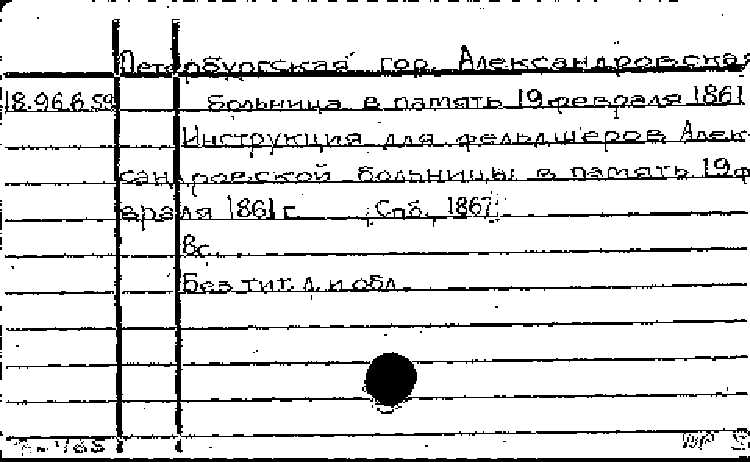 Петербургская гор. Александровская
18.96.6.59 больница в память 19 февраля 1861
Инструкция для фельдшеров Алек-
сандровской больницы в память 19 ф
евраля 1861 г. Спб., 1867.
8с.
Без тит. л. и обл.